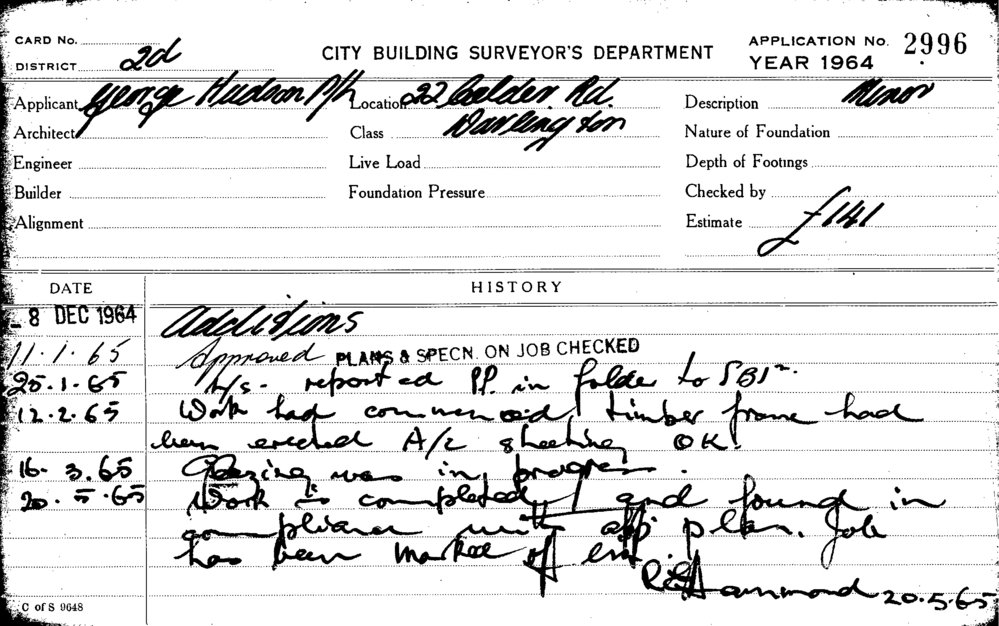 CARD No.
DISTRICT 2d
CITY BUILDING SURVEYOR'S DEPARTMENT
APPLICATION No. 2996
YEAR 1964
Applicant George Hudson P/L Location 22 Calder Rd. Description Minor
Architect Class Darlington Nature of Foundation
Engineer Live Load Depth of Footings
Builder Foundation Pressure Checked by
Alignment Estimate £141
DATE HISTORY
- 8 DEC 1964 Additions
11.1.65 Approved PLANS & SPECN. ON JOB CHECKED
25.1.65 reported P.P. in folder to SBI
12.2.65 Work had commenced, timber frame had
been erected A/c sheeting OK.
16. 3.65 Glazing was in progress.
20.5.65 Work is completed and found in
compliance with app plan. Job
has been marked off list.
Hammond 20.5.65
C of S 9648